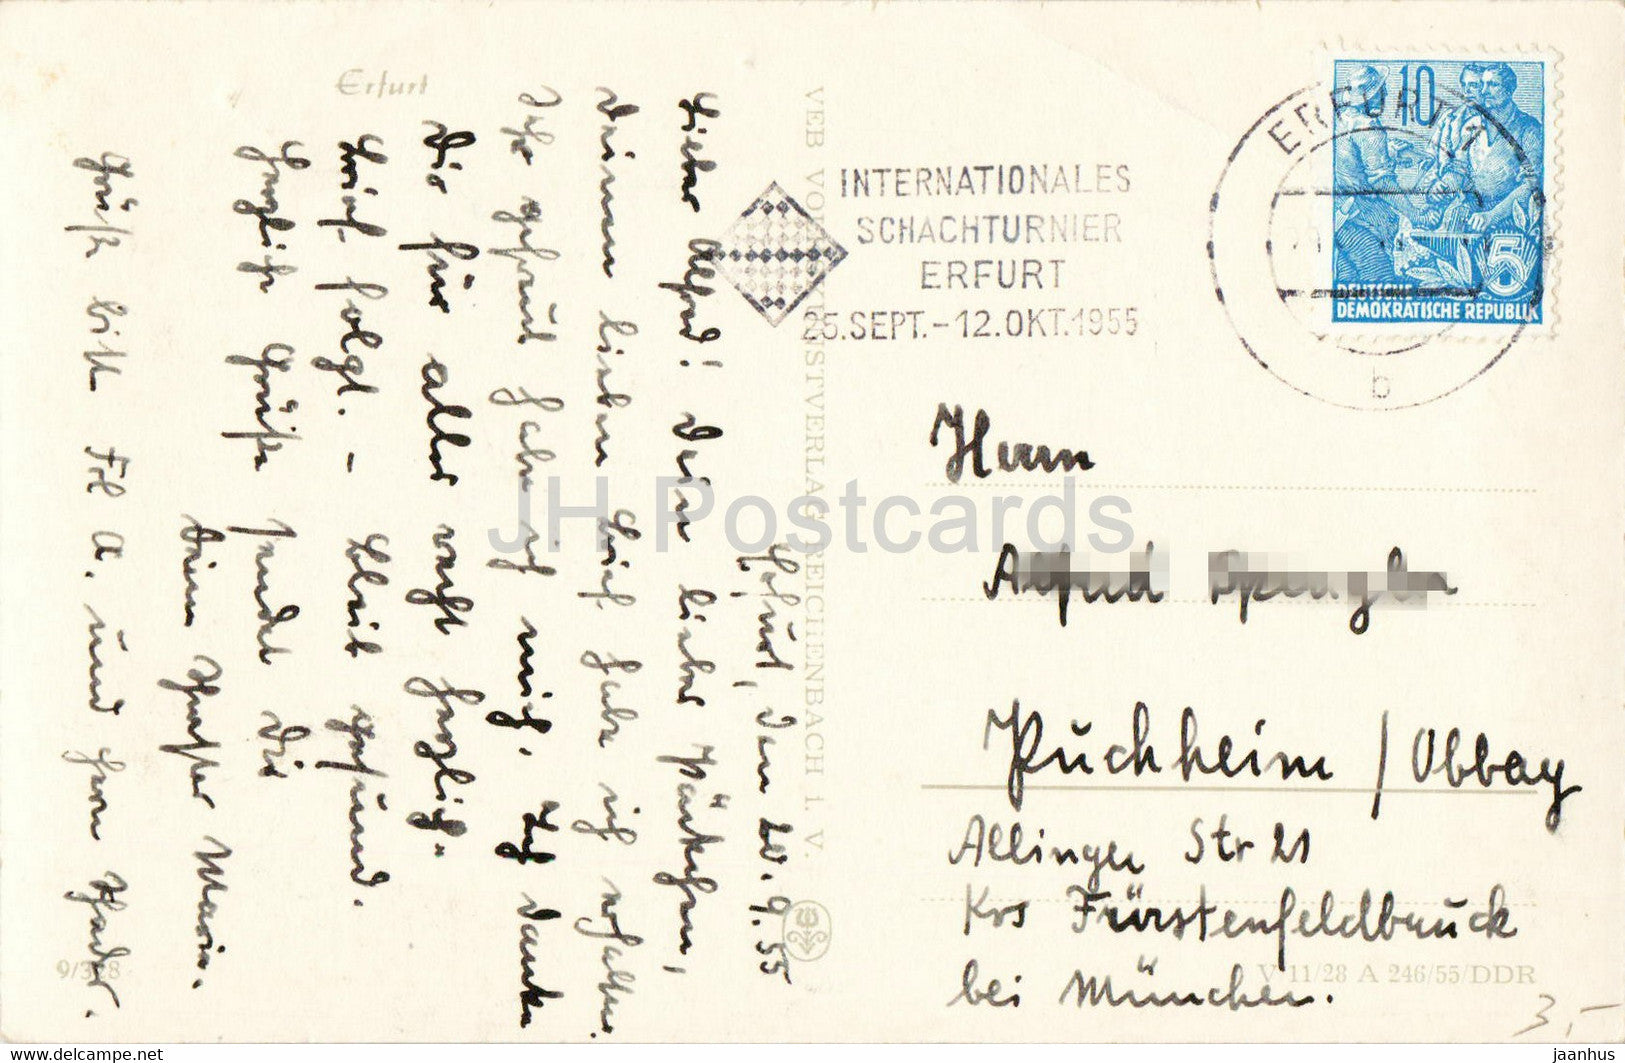 Erfurt
Erfurt, den 20.9.55
Lieber Alfred! Dein lieber Päckchen,
Deinen lieben Brief habe ich erhalten.
Sehr gefreut habe ich mich. Ich danke
Dir für alles recht herzlich.
Brief folgt. - Bleib gesund.
Herzliche Grüße sendet Dir
Deine Maria.
Grüße bitte Frl A. und Herrn
9/328
VEB VOLKSKUNSTVERLAG REICHENBACH I. V.
INTERNATIONALES
SCHACHTURNIER
ERFURT
25.SEPT.-12.OKT.1955
ERFURT 1
b
10
5
DEUTSCHE
DEMOKRATISCHE REPUBLIK
Herrn
Alfred
Puchheim / Obbay
Allinger Str 21
Krs Fürstenfeldbruck
bei München.
V 11/28 A 246/55/DDR
3,-
JH Postcards
www.delcampe.net
jaanhus